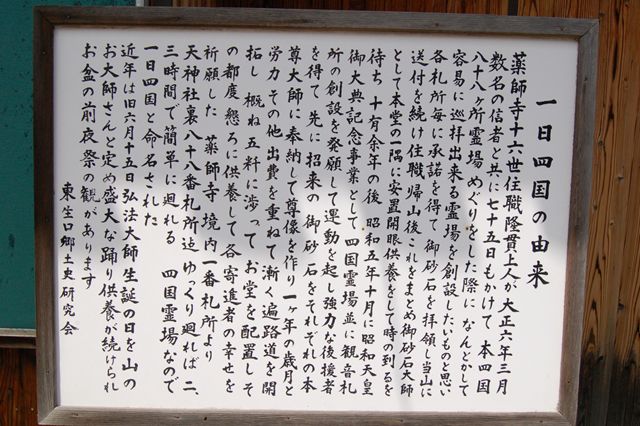 一日四国の由来
薬師寺十六世住職隆貫上人が大正六年三月
数名の信者と共に七十五日もかけて 本四国
八十八ヶ所霊場 めぐりをした際に なんとかして
容易に巡拝出来る霊場を創設したいものと思い
各札所毎に承諾を得て 御砂石を拝領し当山に
送付を続け住職帰山後これをまとめ御砂石大師
として本堂の一隅に安置開眼供養をして時の到るを
待ち 十有余年の後 昭和五年十月に昭和天皇
御大典記念事業として 四国霊場並に観音札
所の創設を発願して運動を起し強力な後援者
を得て 先に招来の 御砂石をそれぞれの本
尊大師に奉納して尊像を作り 一ヶ年の歳月と
労力 その他 出費を重ねて 漸く 遍路道を開
拓し 概ね五粁に渉って お堂を配置し そ
の都度 懇ろに供養して 各寄進者の幸せを
祈願した 薬師寺 境内 一番札所より
天神社裏 八十八番札所迄 ゆっくり廻れば 二、
三時間で簡単に廻れる 四国霊場なので
一日四国と命名された
近年は旧六月十五日弘法大師生誕の日を山の
お大師さんと定め盛大な踊り供養が続けられ
お盆の前夜祭の観があります
東生口郷土史研究会